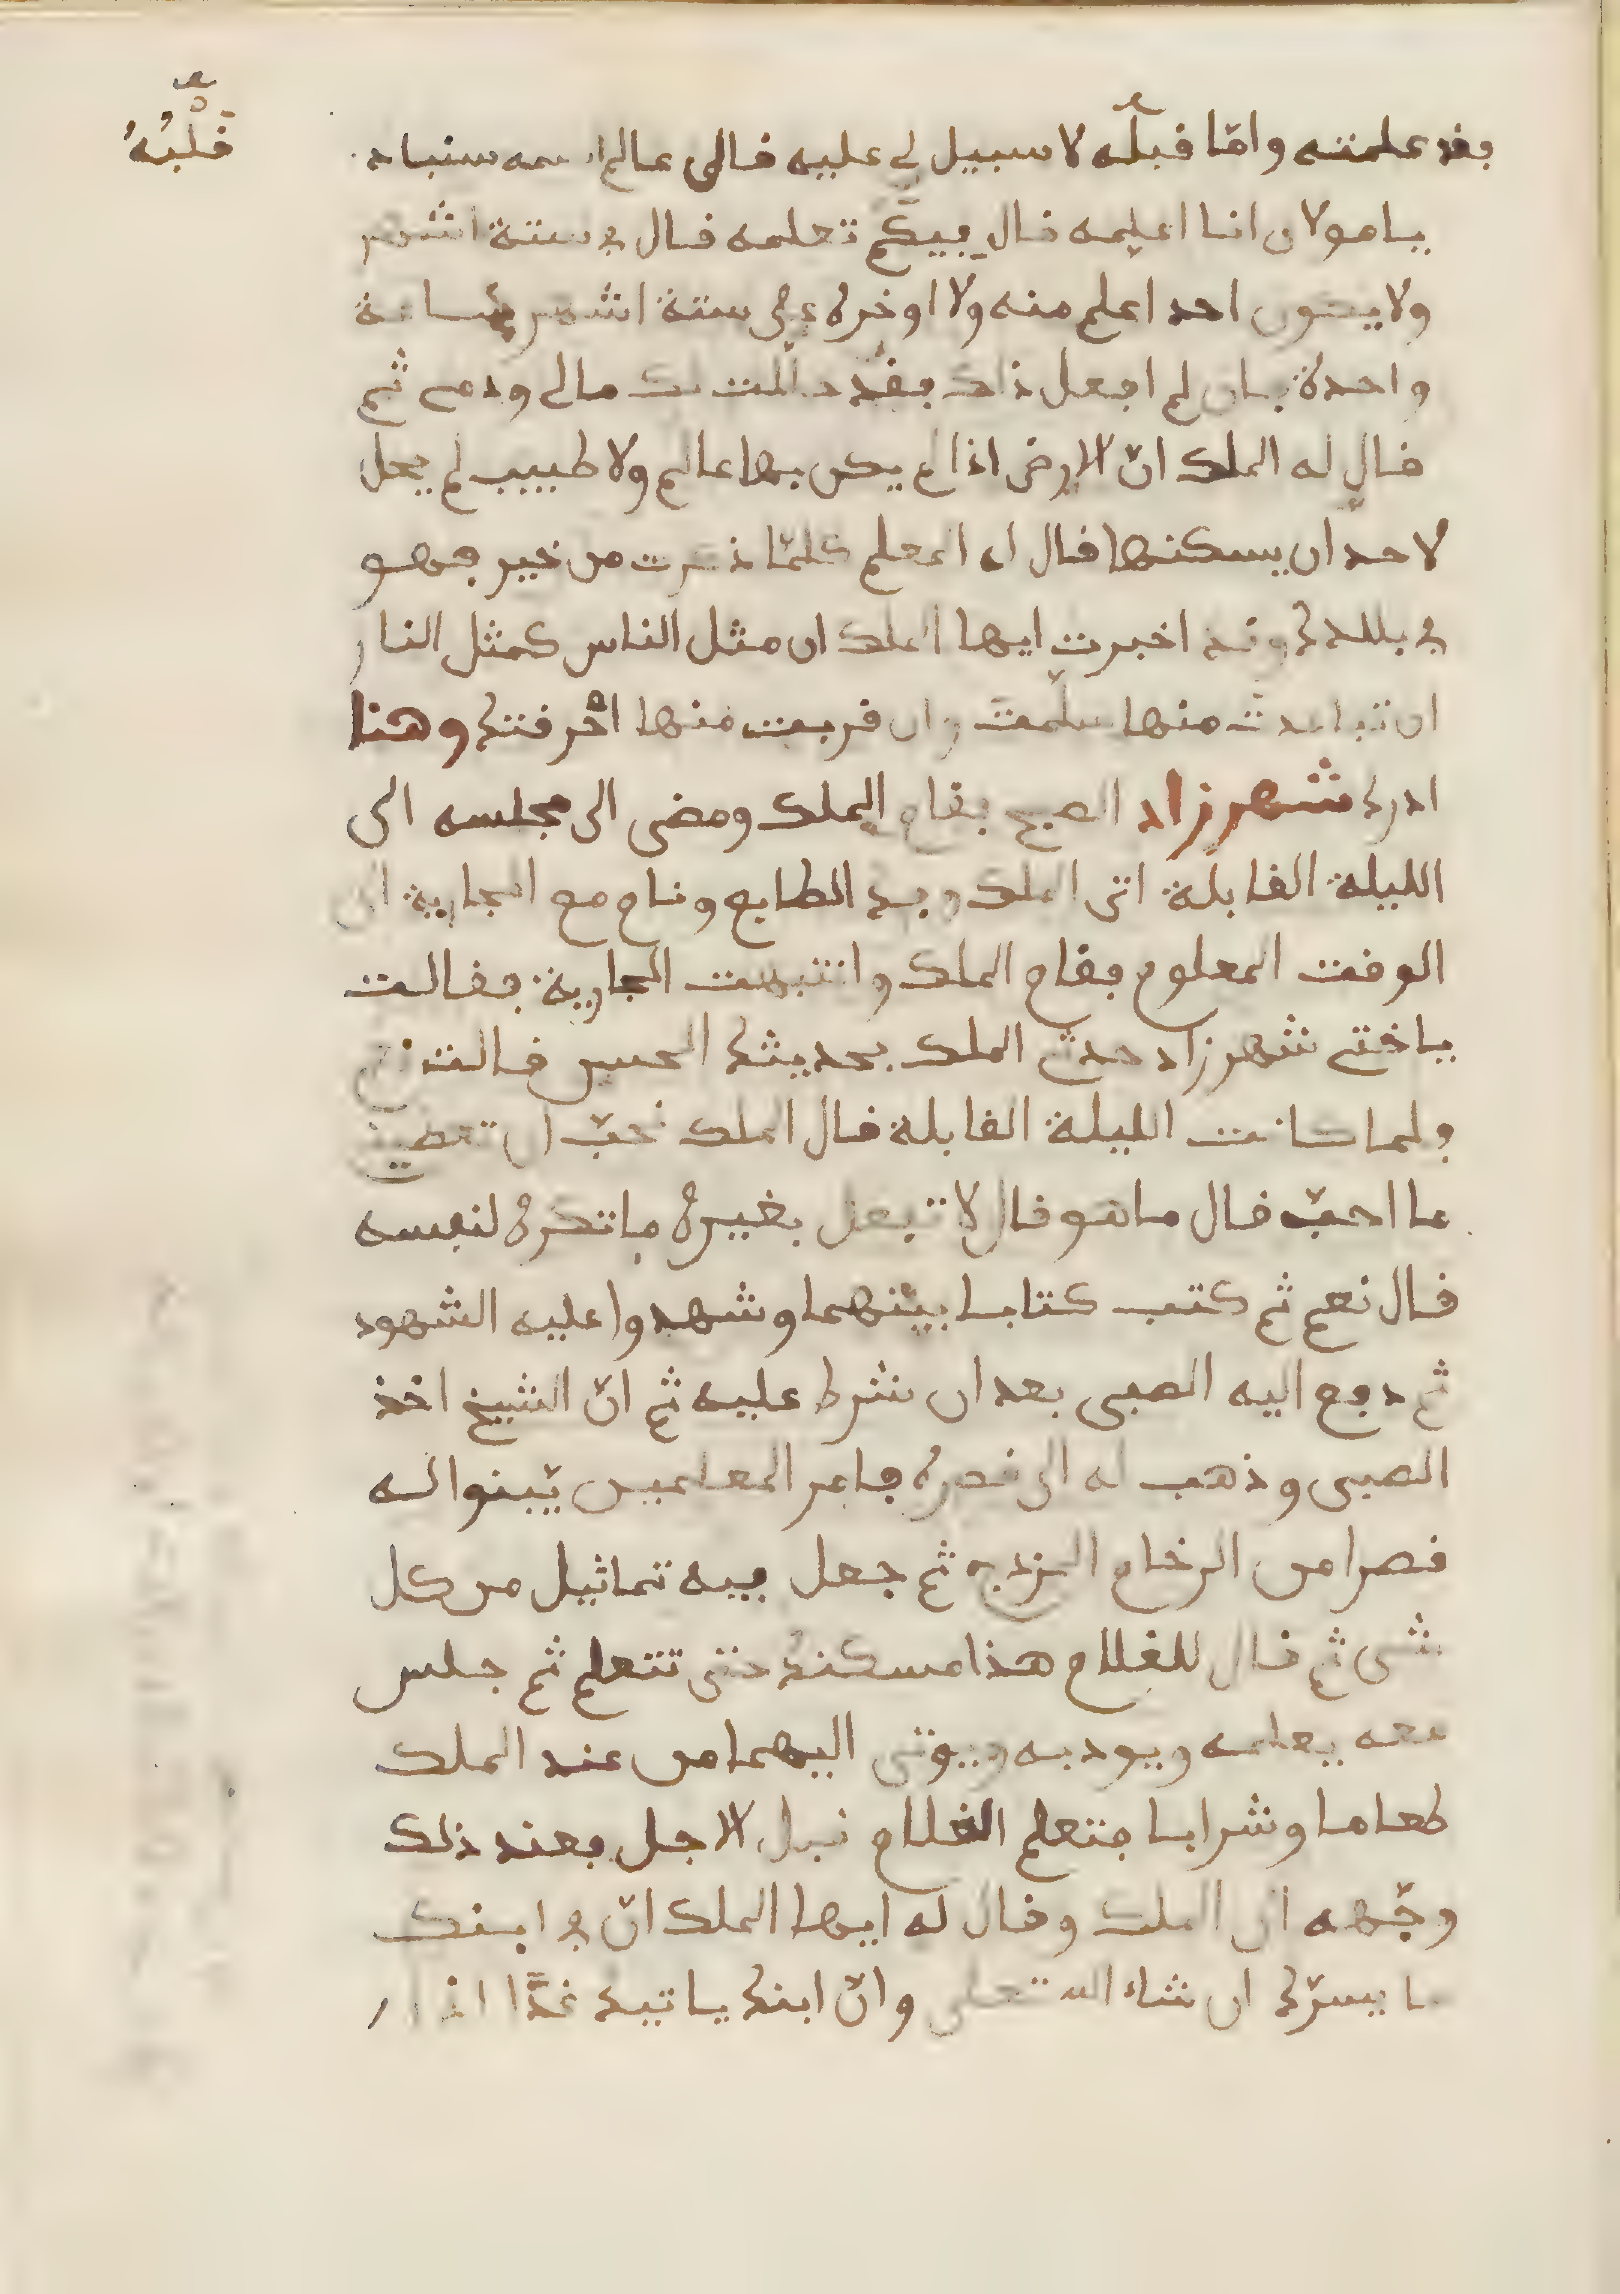 قلبه
فقد علمته واما قبله لا سبيل لي عليه فالى عالم اسمه سنباد
يا مولاى انا اعلمه قال فيكم تعلمه قال في ستة اشهر
ولا يكون احد اعلم منه ولا اوخره على ستة اشهر ساعة
واحدة فان لم افعل ذلك فقد حللت لك مالي ودمي ثم
قال له الملك انّ الارض اذا لم يكن بها عالم ولا طبيب لم يحل
لاحد ان يسكنها قال له المعلم كلمّا ذكرت من خير فهو
في بلدك وقد اخبرت ايها الملك ان مثل الناس كمثل النار
ان تباعدت منها سلمت وان قربت منها احرقتك وهنا
ادرك شهرزاد الصبح فقام الملك ومضى الى مجلسه الى
الليلة القابلة اتى الملك وفك الطابع ونام مع الجارية الى
الوقت المعلوم فقام الملك وانتبهت الجارية فقالت
ياختي شهرزاد حدث الملك بحديثك الحسن قالت نعم
ولما كانت الليلة القابلة قال الملك نحبّ ان تعطيني
ما احبّ قال ما هو قال لا تفعل بغيره ما تكره لنفسه
قال نعم ثم كتب كتابا بينهما وشهدوا عليه الشهود
ثم دفع اليه الصبي بعد ان شرط عليه ثم انّ الشيخ اخذ
الصبى وذهب له الى قصره فامر المعلمين يّبنوا له
قصرا من الرخام المزدج ثم جعل فيه تماثيل من كل
شى ثم قال للغلام هذا مسكنك حتى تتعلم ثم جلس
معه يعلمه ويودبه ويوتى اليهما من عند الملك
طعاما وشرابا فتعلم الغلام قبل الاجل فعند ذلك
وجّهه الى الملك وقال له ايها الملك انّ في ابنك
ما يسرّك ان شاء الله تعلى وانّ ابنك ياتيك غدًا اذا